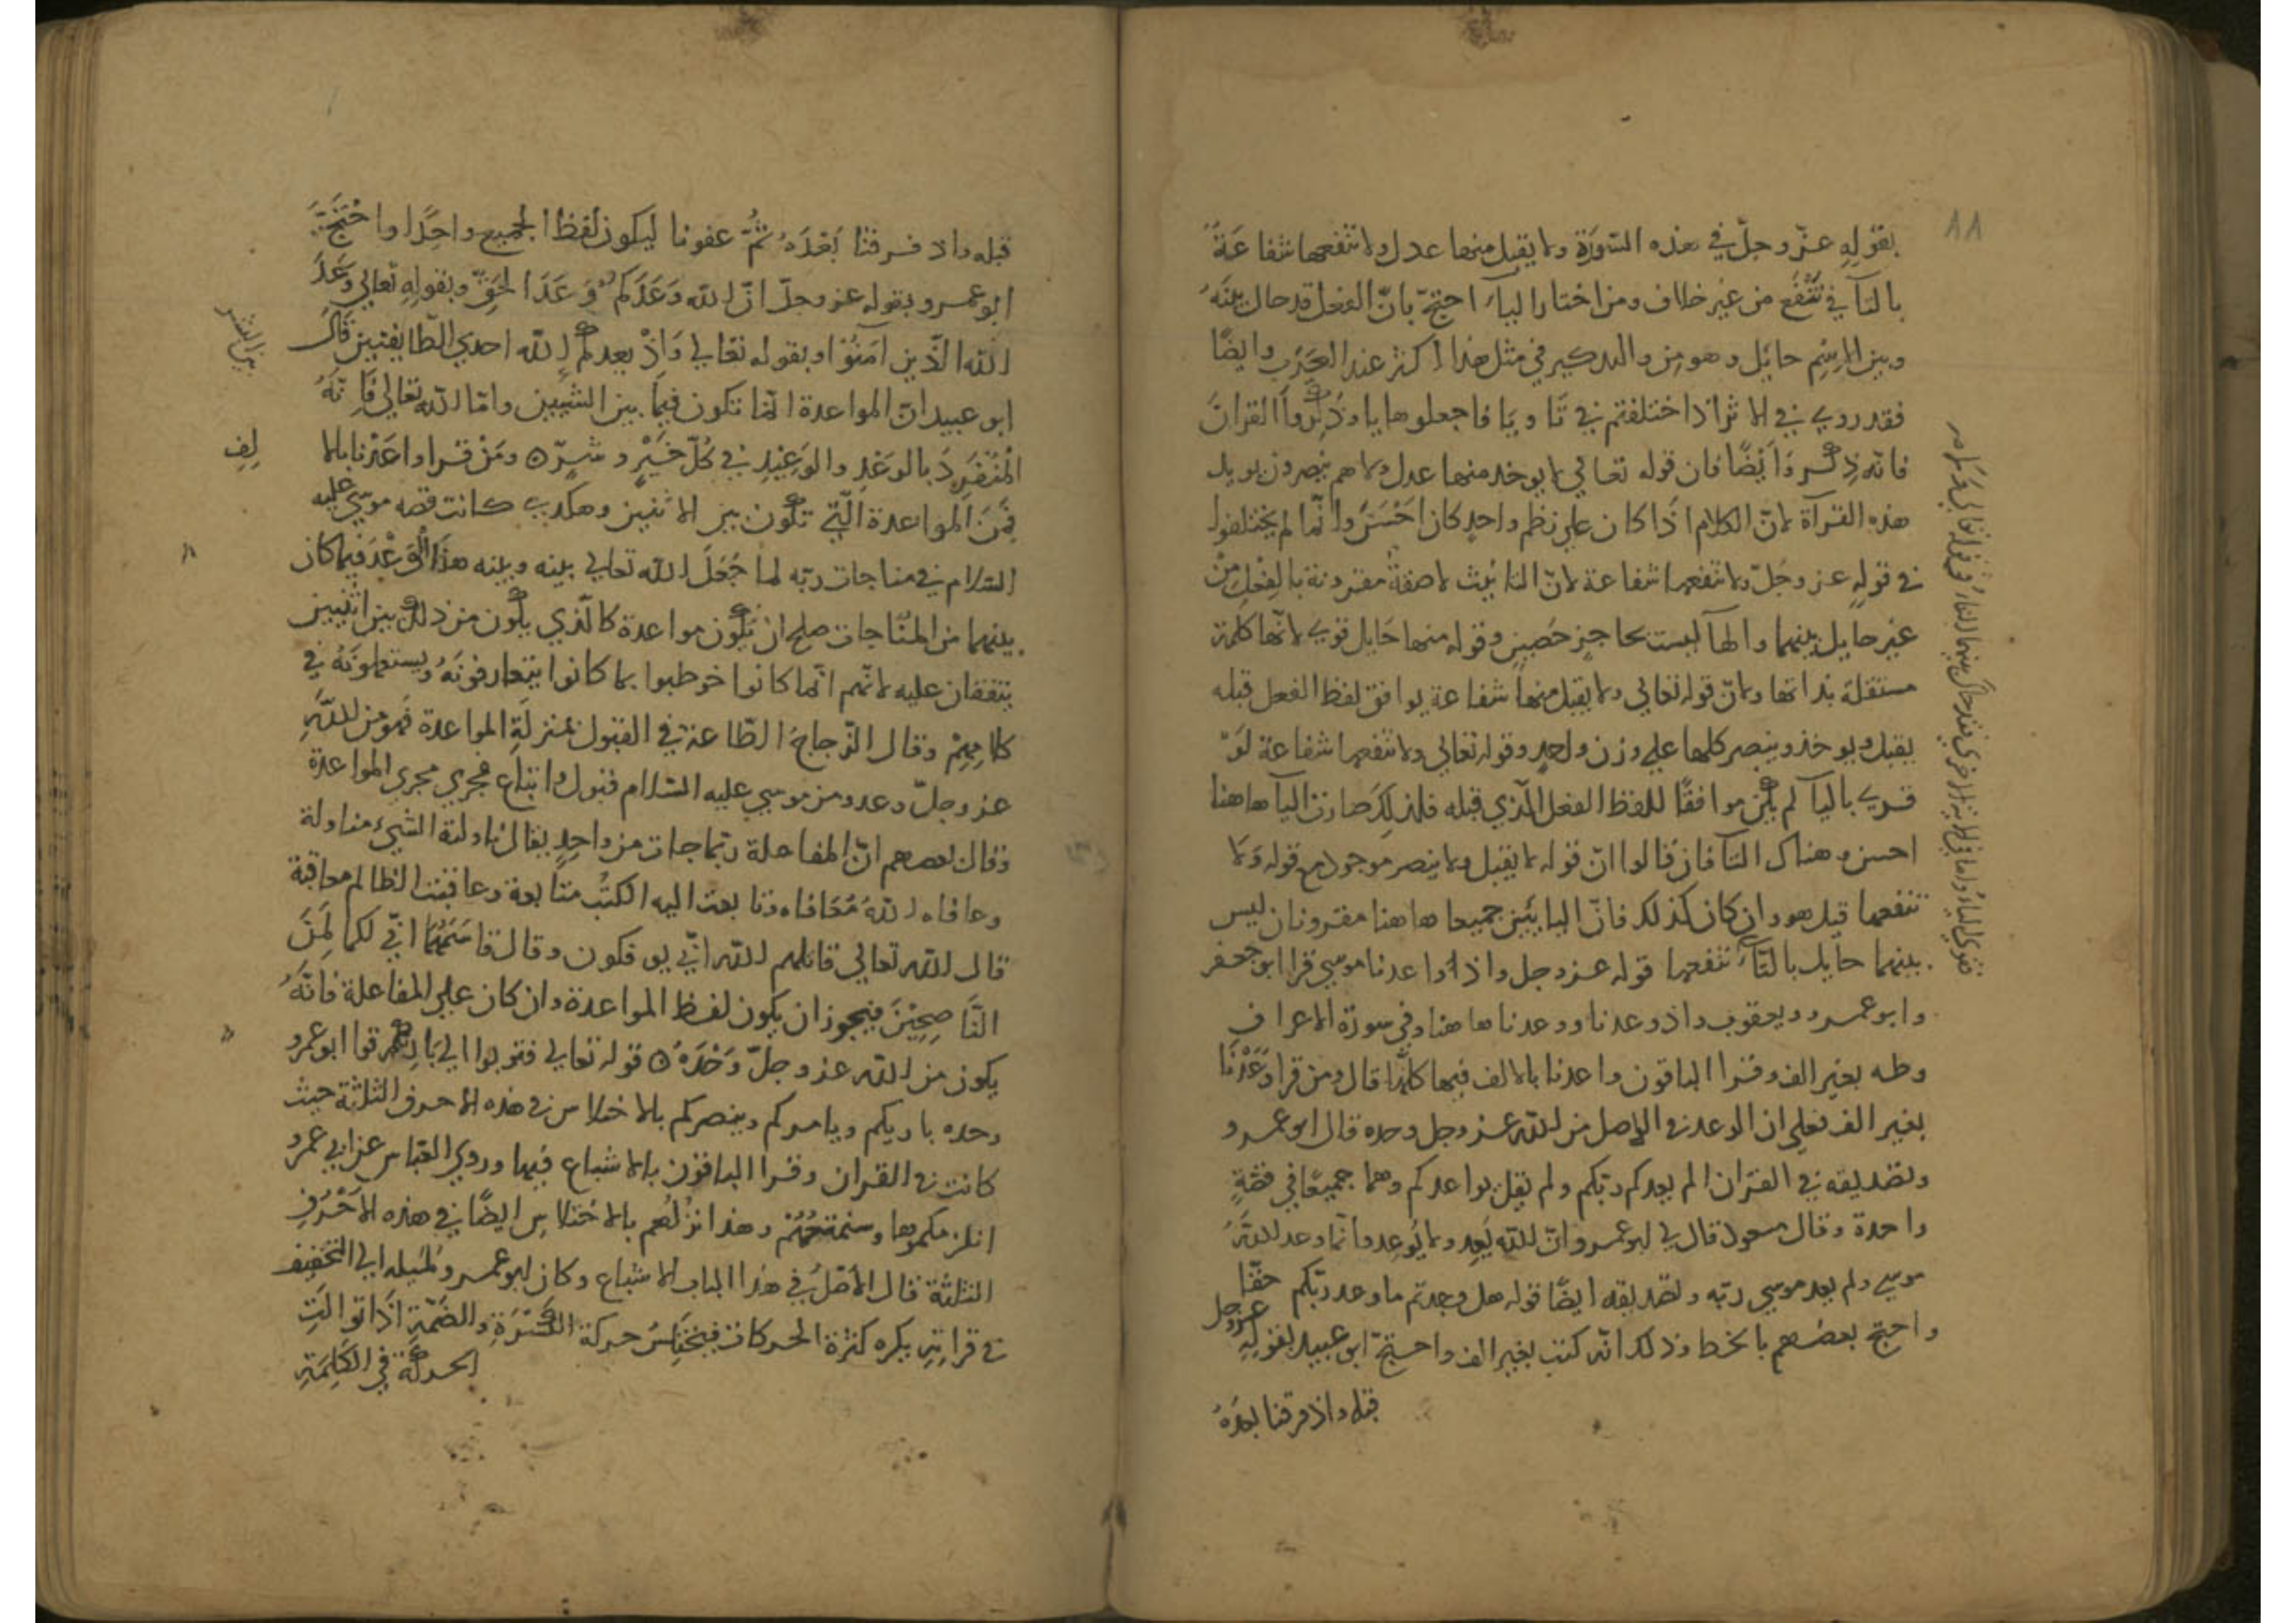 ٨٨
بقوله عزّ وجلّ في هذه السّورة ولا يقبل منها عدل ولا تنفعها شفاعة
بالتآ في تنفع من غير خلاف ومن اختار اليآء احتجّ بانّ الفعل قد حال بينه
وبين الاسم حائل وهو من والتدكير في مثل هذا اكثر عند العرب وايضًا
فقد روي في الاثر اذا اختلفتم في تا ويا فاجعلوها يا وذكّروا القران
فانه ذكر وايضًا فان قوله تعالى لا يوخد منها عدل ولا هم ينصرون يويد
هذه القرآة لانّ الكلام اذا كان على نظم واحد كان احسن وانّما لم يختلفوا
في قوله عز وجلّ ولا تنفعها شفاعة لانّ التانيث لاصفة مقرونة بالفعل من
غير حايل بينهما والهآ ليست بحاجز حصين وقوله منها حايل قوي لانّها كلمة
مستقلة بذاتها ولانّ قوله تعالى ولا يقبل منها شفاعة يوافق لفظ الفعل قبله
يقبل ويوخذ وينصر كلها علي وزن واحد وقوله تعالي ولا تنفعها شفاعة لو
قري باليآ لم يكن موافقًا للفظ الفعل الّذي قبله فلذلك صارت اليآ هاهنا
احسن وهناك التآ فان قالوا انّ قوله لا يقبل ولا ينصر موجود مع قوله ولا
تنفعها قيل هو وان كان كذلك فانّ اليايين جميعا هاهنا مقرونان ليس
بينهما حآيل بالتّآء تنفعها قوله عز وجل واذ واعدنا موسي قرا ابو جعفر
وابو عمرو ويعقوب واذ وعدنا ووعدنا هاهنا وفي سورة الاعراف
وطه بغير الف وقرا الباقون واعدنا بالالف فيها كلّها قال ومن قرا وعدنا
بغير الف فعلى ان الوعد في الاصل من الله عز وجل وحده قال ابو عمرو
وتصديقه في القران الم يعدكم ربّكم ولم يقل يواعدكم وهما جميعًا في قصّة
واحدة وقال مسعود قال لي ابو عمرو انّ الله يعد ولا يوعد وانّما وعد الله
موسي ولم يعد موسي ربّه وتصديقه ايضًا قوله هل وجدتم ما وعد ربّكم حقّا
واحتج بعضهم بالخط وذلك انّه كتب بغير الف واحتجّ ابو عبيد بقوله عز وجل
قبله واذ فرقنا بعده
قبله واذ فرقنا بعده ثمّ عفونا ليكون لفظ الجميع واحدًا واحتجّ
ابو عمرو بقوله عز وجلّ انّ الله وعدكم وعد الحقّ وبقوله تعالي وعد
الله الّذين امنوا وبقوله تعالي واذ يعدكم الله احدي الطّايفتين قال
ابو عبيد انّ المواعدة انّما تكون فيما بين الشّيين وامّا الله تعالي فانّه
المنفرد بالوعد والوعيد في كلّ خير وشرّ ه ومن قرا واعدنا بالا
لف
فمن المواعدة الّتي تكون بين الاثنين وهكدي كانت قصه موسي عليه
السّلام في مناجات ربّه لما جعل الله تعالي بينه وبينه هذا الوعد فيما كان
بينهما من المناجات صلح ان تكون مواعدة كالّذي يكون من ذلك بين اثنين
يتفقان عليه لانّهم انّما كانوا خوطبوا بما كانوا يتعارفونه ويستعملونه في
كلامهم وقال الزّجاج الطّاعة في القبول بمنزلة المواعدة فهو من الله
عز وجلّ وعد ومن موسي عليه السّلام قبول واتباع فجري مجري المواعدة
وقال بعضهم انّ المفاعلة ربّما جات من واحد يقال ناولته الشّيء مناولة
وعافاه الله معافاه وتابعت اليه الكتب متابعة وعاقبت الظالم معاقبة
قال الله تعالي قاتلهم الله انّي يوفكون وقال وقاسمهما انّي لكما لمن
النّاصحين فيجوز ان يكون لفظ المواعدة وان كان علي المفاعلة فانّه
يكون من الله عز وجلّ وحده ه قوله تعالي فتوبوا الي باريكم قرا ابو عمرو
وحده باريكم ويامركم وينصركم بالاختلاس في هذه الاحرف الثلثة حيث
كانت في القران وقرا الباقون بالاشباع فيها وروي العبّاس عن ابي عمرو
انلزمكموها وسنمتعهم وهذا نزلهم بالاختلاس ايضًا في هذه الاحرف
الثلثة قال الاصل في هذا الباب الاشباع وكان ابو عمرو لميله الي التخفيف
في قراته يكره كثرة الحركات فيختلس حركة الكسرة والضمّة اذا توالت
الحركة في الكلمة